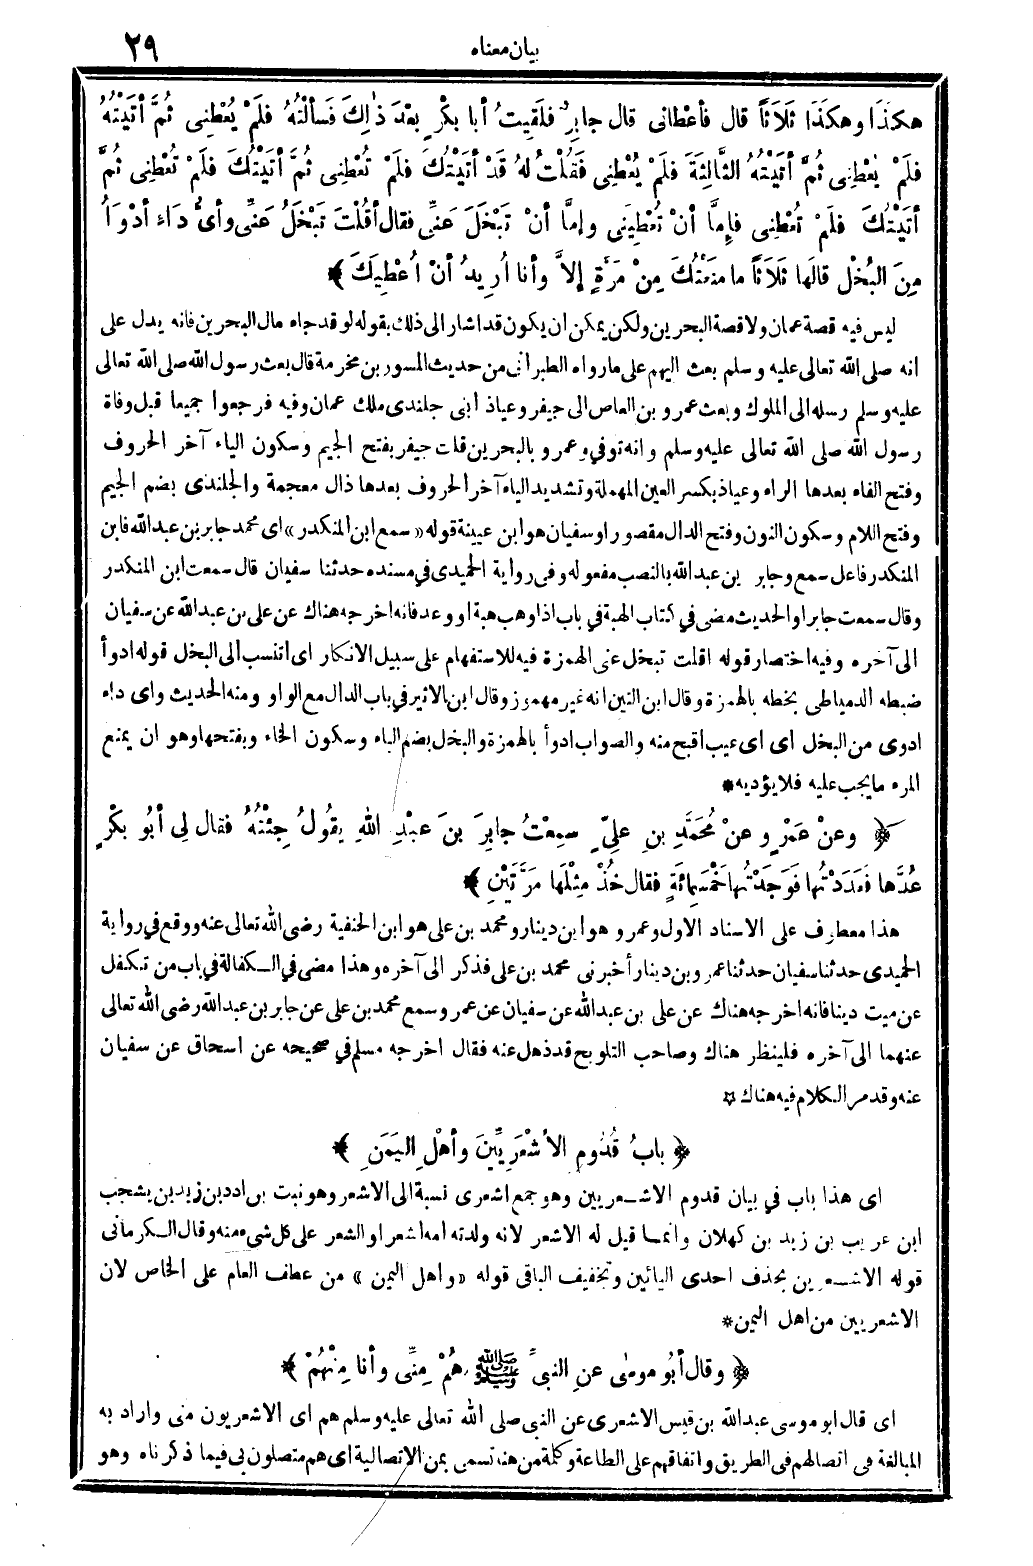 بيان معناه ٢٩
هكَذَا وهكَذَا ثَلَاثاً قال فأعْطانى قال جابِرٌ فلَقِيتُ أبا بكْرٍ بعْدَ ذٰلِكَ فَسألْتُهُ فلَمْ يُعْطِنِى ثُمَّ أتَيْتُهُ
فلَمْ يُعْطِنِى ثُمَّ أتَيْتُهُ الثَّالِثَةَ فلَمْ يُعْطِنِى فَقُلْتُ لهُ قَدْ أتَيْتُكَ فلَمْ تُعْطِنِى ثُمَّ أتَيْتُكَ فلَمْ تُعْطِنِى ثُمَّ
أتَيْتُكَ فلَمْ تُعْطِنِى فإمَّا أنْ تُعْطِيَنِى وإمَّا أنْ تَبْخَلَ عَنِّى فقال أقُلْتَ تَبْخَلُ عَنِّى وأىُّ دَاءٍ أدْوَأُ
مِنَ البُخْلِ قالَها ثَلَاثاً ما مَنَعْتُكَ مِنْ مَرَّةٍ إلاَّ وأنا أُرِيدُ أنْ أُعْطِيَكَ ﴾
ليس فيه قصة عمان ولا قصة البحرين ولكن يمكن ان يكون قد اشار الى ذلك بقوله لو قد جاء مال البحرين فانه يدل على
انه صلى الله تعالى عليه وسلم بعث اليهم على ما رواه الطبرانى من حديث المسور بن مخرمة قال بعث رسول الله صلى الله تعالى
عليه وسلم رسله الى الملوك وبعث عمرو بن العاص الى جيفر وعياذ ابنى جلندى ملك عمان وفيه فرجعوا جميعا قبل وفاة
رسول الله صلى الله تعالى عليه وسلم وانه توفي وعمرو بالبحرين قلت جيفر بفتح الجيم وسكون الياء آخر الحروف
وفتح الفاء بعدها الراء وعياذ بكسر العين المهملة وتشديد الياء آخر الحروف بعدها ذال معجمة والجلندى بضم الجيم
وفتح اللام وسكون النون وفتح الدال مقصورا وسفيان هو ابن عيينة قوله «سمع ابن المنكدر» اى محمد جابر بن عبد الله فابن
المنكدر فاعل سمع وجابر بن عبد الله بالنصب مفعوله وفى رواية الحميدى في مسنده حدثنا سفيان قال سمعت ابن المنكدر
وقال سمعت جابرا والحديث مضى في كتاب الهبة في باب اذا وهب هبة او وعد فانه اخرجه هناك عن على بن عبد الله عن سفيان
الى آخره وفيه اختصار قوله اقلت تبخل عنى الهمزة فيه للاستفهام على سبيل الانكار اى اتنسب الى البخل قوله ادوأ
ضبطه الدمياطى بخطه بالهمزة وقال ابن التين انه غير مهموز وقال ابن الاثير في باب الدال مع الواو ومنه الحديث واى داء
ادوى من البخل اى اى عيب اقبح منه والصواب ادوأ بالهمزة والبخل بضم الباء وسكون الخاء وبفتحها وهو ان يمنع
المرء ما يجب عليه فلا يؤديه *
﴿ وعنْ عَمْرٍ و عنْ مُحَمَّدِ بنِ علِيٍّ سمِعْتُ جابِرَ بنَ عبْدِ اللهِ يقُولُ جِئْتُهُ فقال لِى أبُو بكْرٍ
عُدَّها فَعَدَدْتُها فَوَجَدْتُها خَمْسَمِائَةٍ فقال خُذْ مِثْلَها مَرَّتَيْنِ ﴾
هذا معطوف على الاسناد الاول وعمرو هو ابن دينار ومحمد بن على هو ابن الحنفية رضى الله تعالى عنه ووقع في رواية
الحميدى حدثنا سفيان حدثنا عمرو بن دينار أخبرنى محمد بن على فذكر الى آخره وهذا مضى في الكفالة في باب من تكفل
عن ميت دينا فانه اخرجه هناك عن على بن عبد الله عن سفيان عن عمرو سمع محمد بن على عن جابر بن عبد الله رضى الله تعالى
عنهما الى آخره فلينظر هناك وصاحب التلويح قد ذهل عنه فقال اخرجه مسلم في صحيحه عن اسحاق عن سفيان
عنه وقد مر الكلام فيه هناك ✩
﴿ بابُ قُدُومِ الأشْعَرِيِّينَ وأهْلِ اليَمَنِ ﴾
اى هذا باب في بيان قدوم الاشعريين وهو جمع اشعرى نسبة الى الاشعر وهو نبت بن ادد بن زيد بن يشجب
ابن عريب بن زيد بن كهلان وانما قيل له الاشعر لانه ولدته امه اشعر او الشعر على كل شىء منه وقال الكرمانى
قوله الاشعرين بحذف احدى اليائين وتخفيف الباقى قوله «واهل اليمن» من عطف العام على الخاص لان
الاشعريين من اهل اليمن *
﴿ وقال أبُو موسٰى عنِ النبىِّ ﷺ هُمْ مِنِّى وأنا مِنْهُمْ ﴾
اى قال ابو موسى عبد الله بن قيس الاشعرى عن النبى صلى الله تعالى عليه وسلم هم اى الاشعريون منى واراد به
المبالغة فى اتصالهم فى الطريق واتفاقهم على الطاعة وكلمة من هنا تسمى بمن الاتصالية اى هم متصلون بى فيما ذكرناه وهو